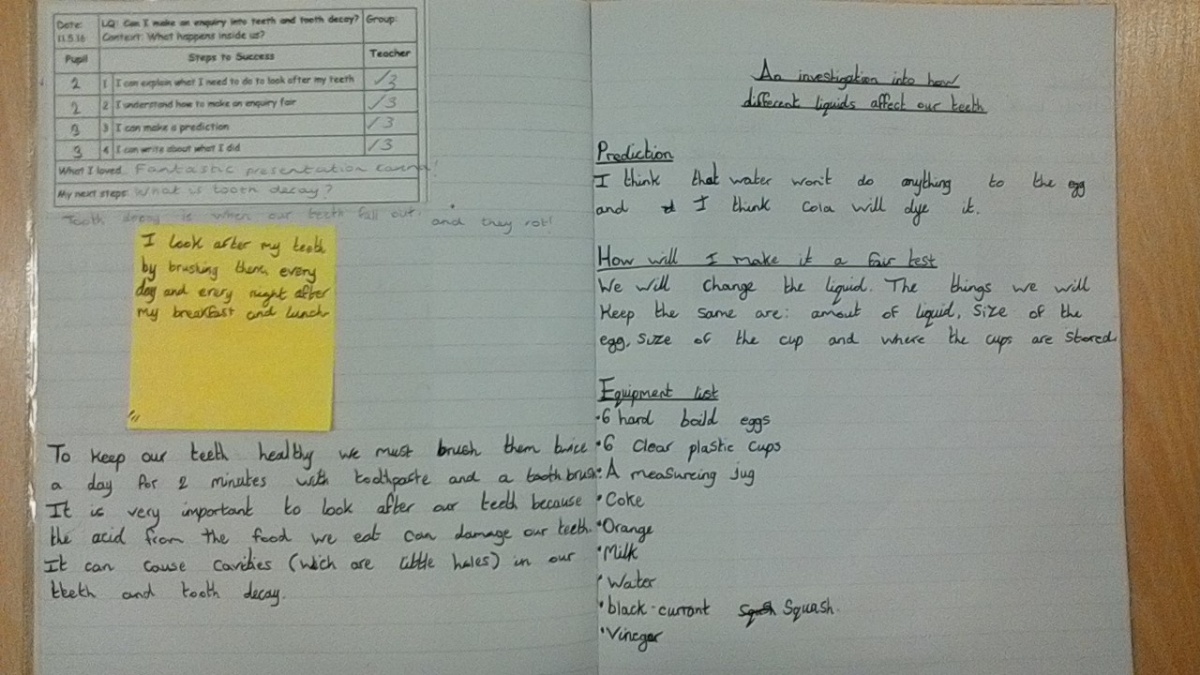 Date: 11.5.16
LQ: Can I make an enquiry into teeth and tooth decay?
Context: What happens inside us?
Group:
Pupil Steps to Success Teacher
2 1 I can explain what I need to do to look after my teeth /3
2 2 I understand how to make an enquiry fair /3
3 3 I can make a prediction /3
3 4 I can write about what I did /3
What I loved... Fantastic presentation !
My next steps: What is tooth decay?
Tooth decay is when our teeth fall out. and they rot!
I look after my teeth
by brushing them every
day and every night after
my breakfast and lunch
To keep our teeth healthy we must brush them twice
a day for 2 minutes with toothpaste and a toothbrush.
It is very important to look after our teeth because
the acid from the food we eat can damage our teeth.
It can cause cavities (wich are little holes) in our
teeth and tooth decay.
An investigation into how
different liquids affect our teeth
Prediction
I think that water won't do anything to the egg
and I think cola will dye it.
How will I make it a fair test
We will change the liquid. The things we will
Keep the same are: amout of liquid, size of the
egg, size of the cup and where the cups are stored
Equipment list
•6 hard boild eggs
•6 Clear plastic cups
•A measureing jug
•Coke
•Orange
•Milk
•Water
•black-currant Squash Squash.
•Vinegar